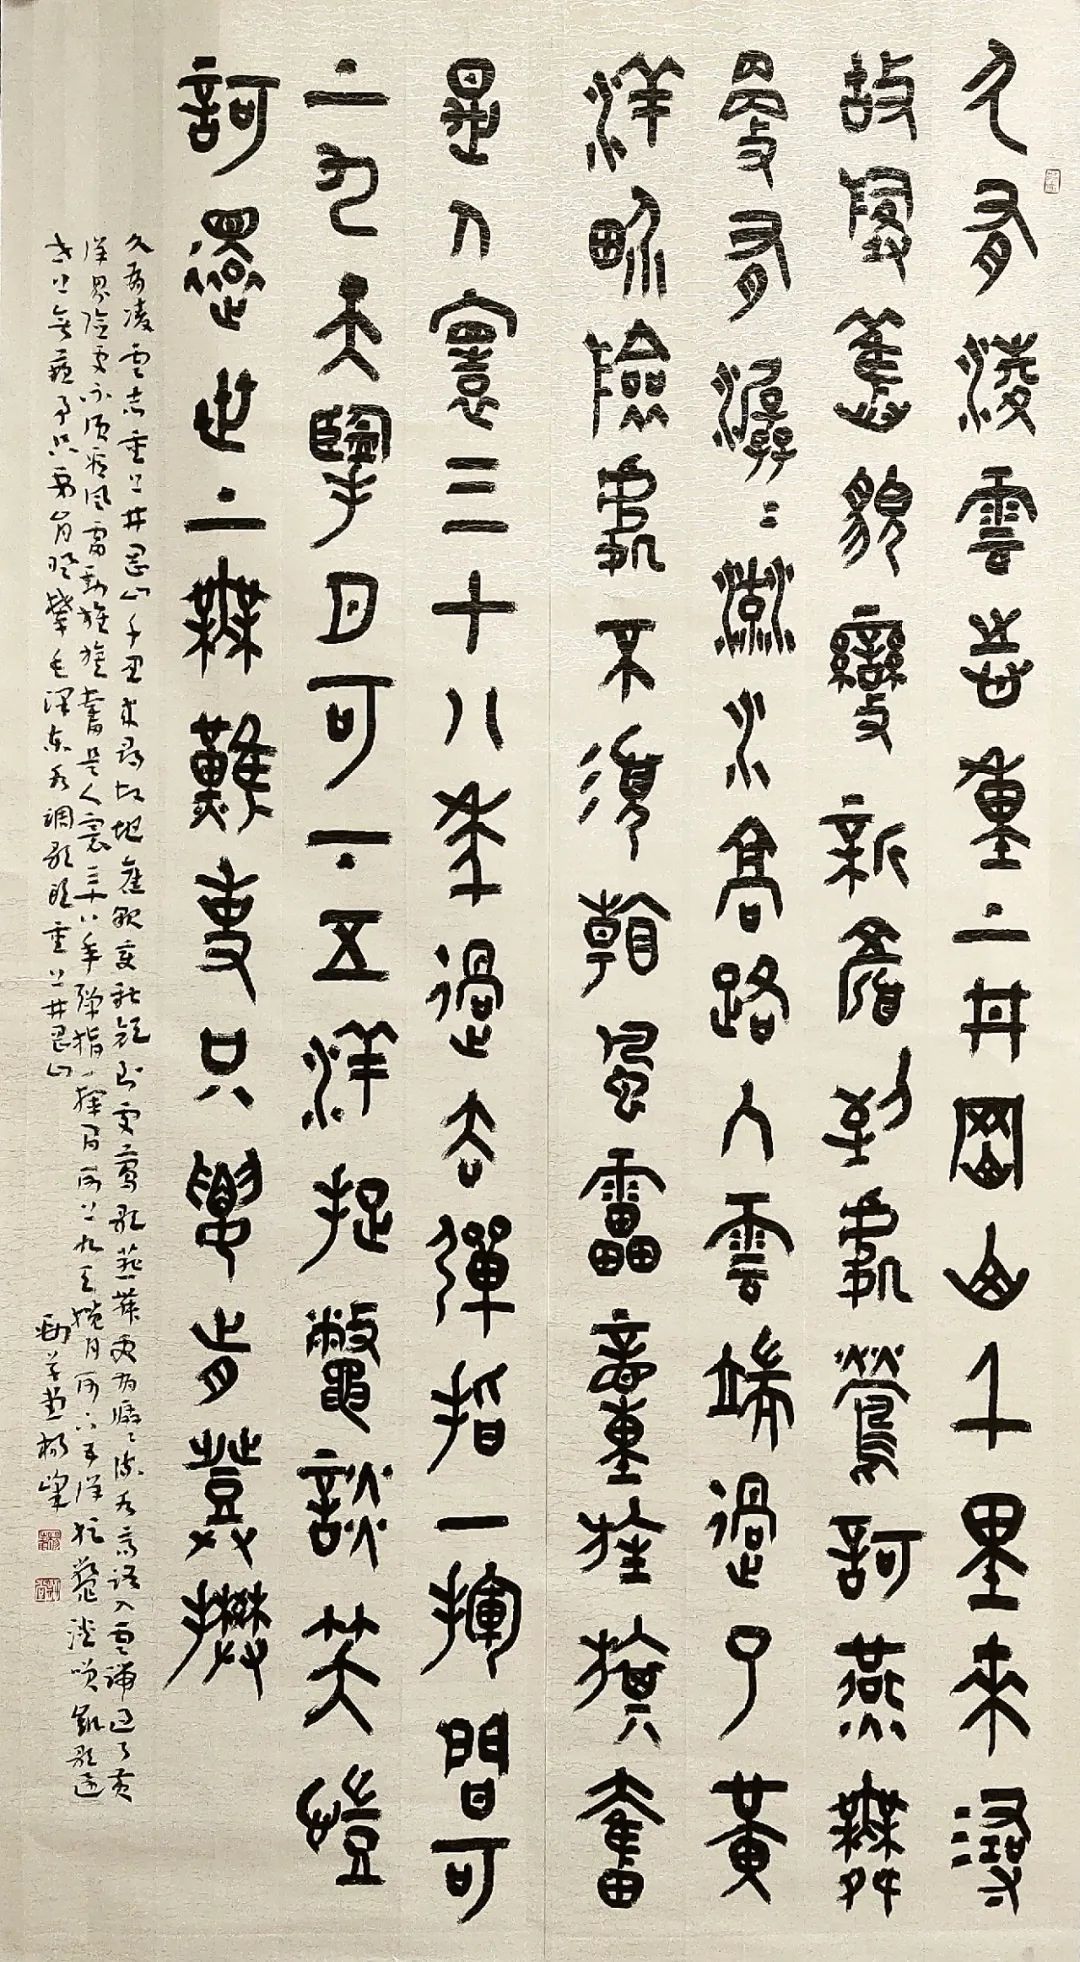 久有淩雲志重上井岡山千里来尋
故地舊貌變新顏到處鶯歌燕舞
更有潺〻流水高路入雲端過了黃
洋界險處不須看風雷動旌旗奮
是人寰三十八年過去彈指一揮間可
上九天攬月可下五洋捉鱉談笑凱
歌還世上無難事只要肯登攀
久有凌雲志重上井岡山千里来尋故地舊貌變新顏到處鶯歌燕舞更有潺〻流水高路入雲端過了黃
洋界險處不須看風雷動旌旗奮是人寰三十八年彈指一揮間可上九天攬月可下五洋捉鱉談笑凱歌還
世上無難事只要肯登攀毛澤東水調歌頭重上井岡山